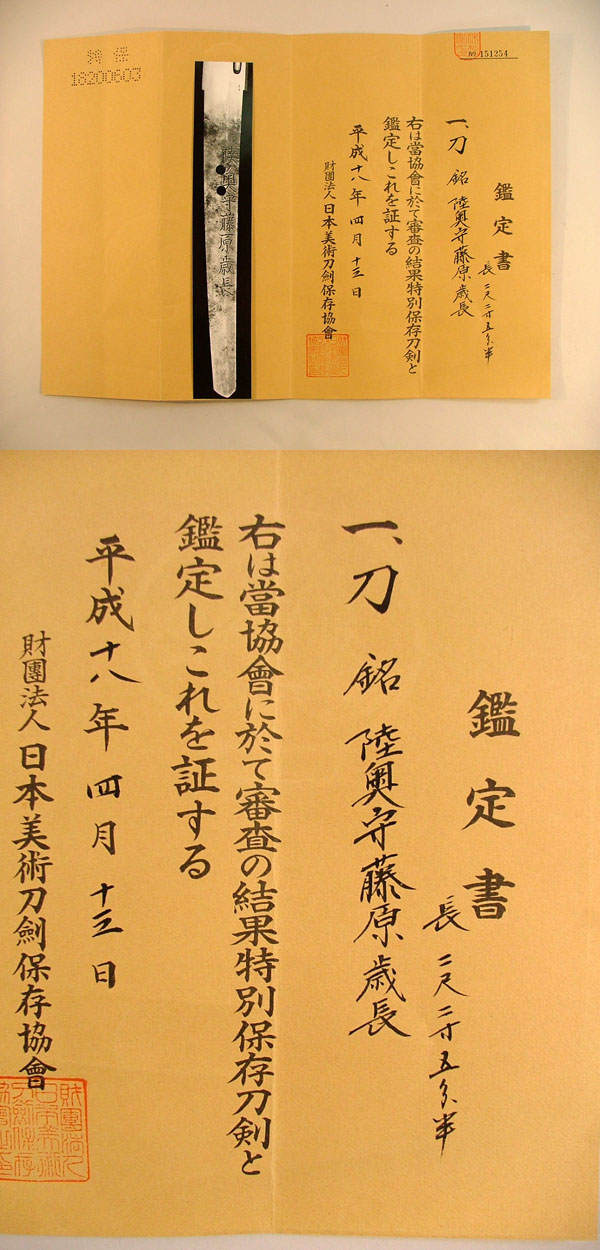 特保
18200603
No 151254
鑑定書
長二尺二寸五分半
一、刀 銘 陸奥守藤原歳長
右は當協會に於て審査の結果特別保存刀剣と
鑑定しこれを証する
平成十八年四月十三日
財團法人日本美術刀劍保存協會
陸奥守藤原歳長
鑑定書
長二尺二寸五分半
一、刀 銘 陸奥守藤原歳長
右は當協會に於て審査の結果特別保存刀剣と
鑑定しこれを証する
平成十八年四月十三日
財團法人日本美術刀劍保存協會